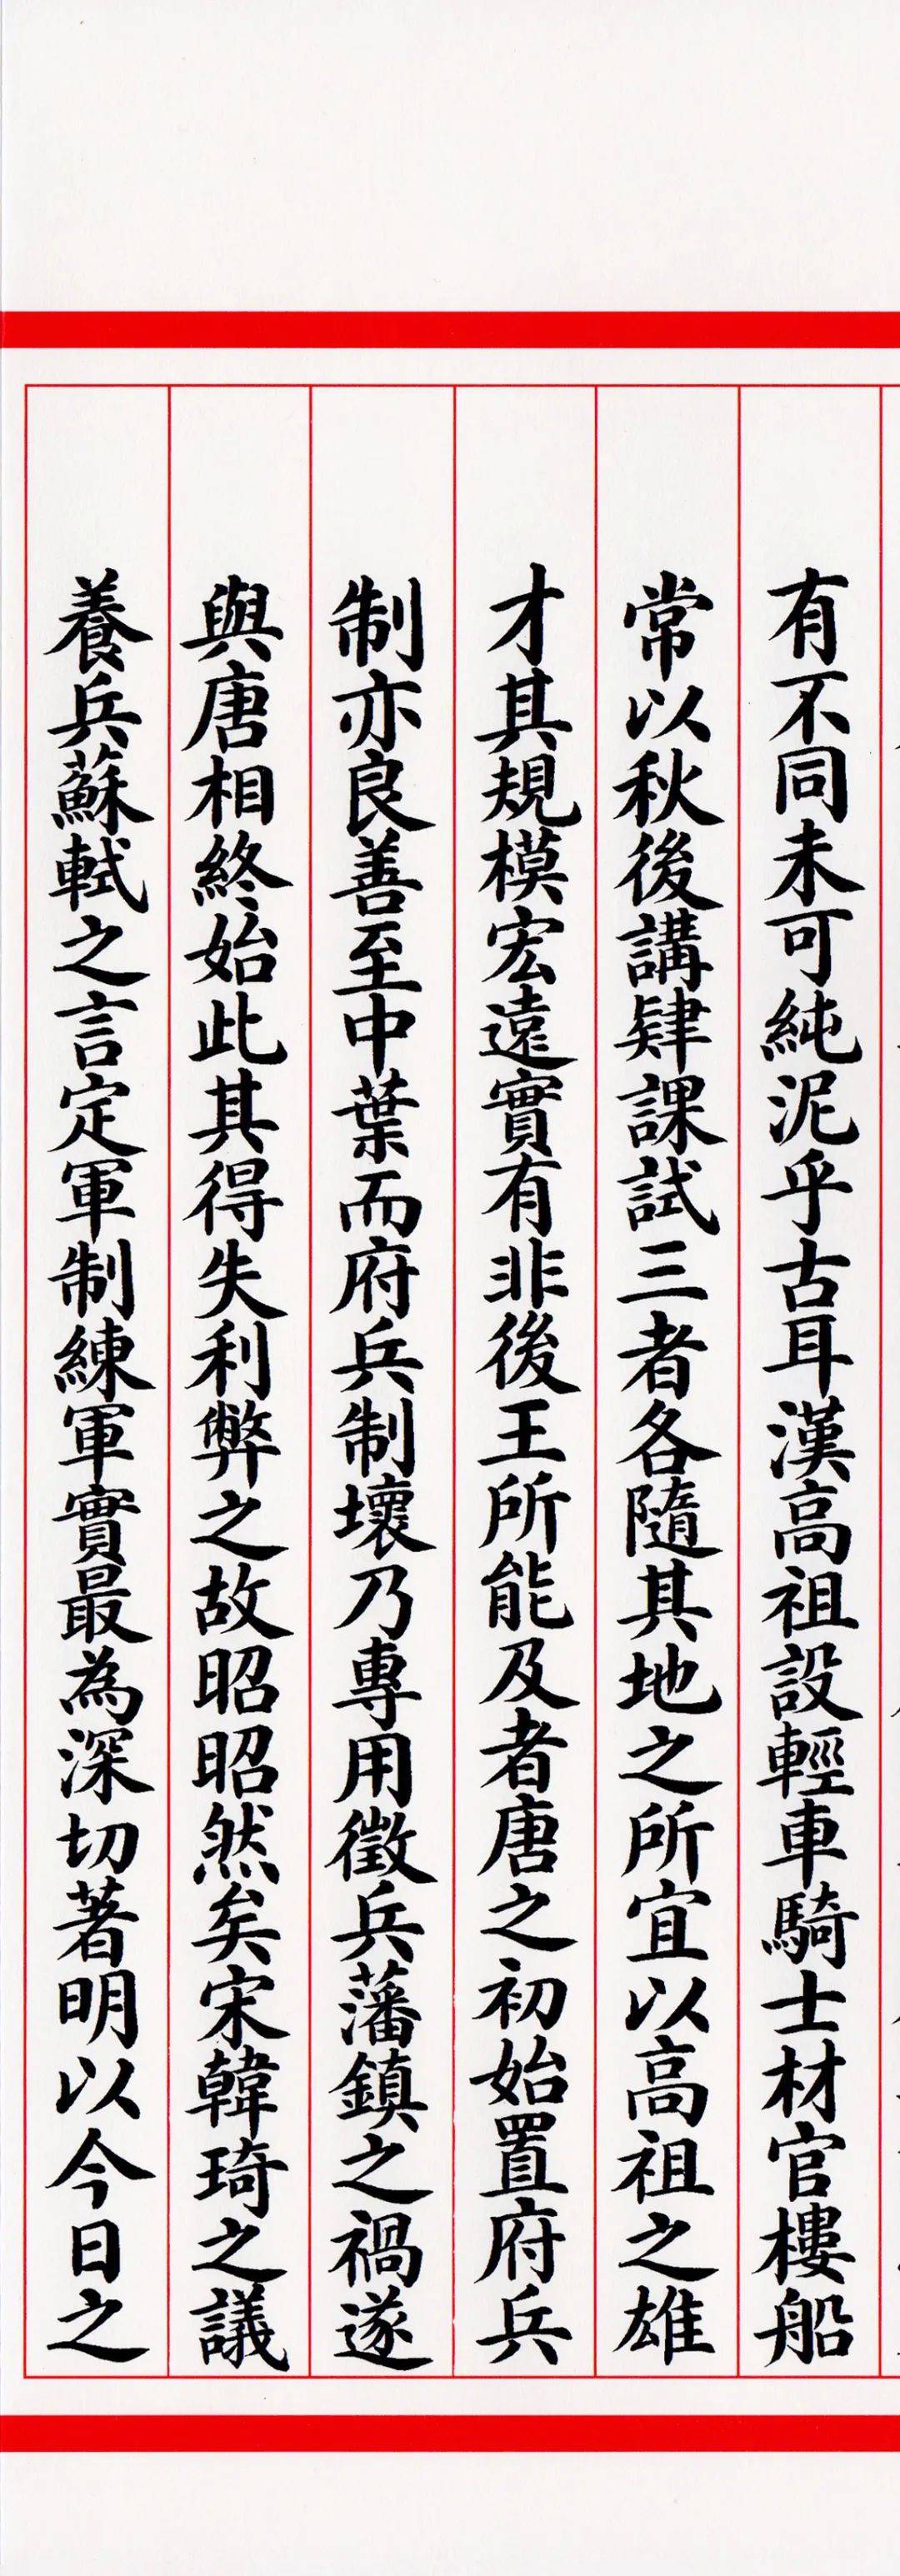 有不同未可純泥乎古耳漢高祖設輕車騎士材官樓船
常以秋後講肄課試三者各隨其地之所宜以高祖之雄
才其規模宏遠實有非後王所能及者唐之初始置府兵
制亦良善至中葉而府兵制壞乃專用徵兵藩鎮之禍遂
與唐相終始此其得失利弊之故昭昭然矣宋韓琦之議
養兵蘇軾之言定軍制練軍實最為深切著明以今日之